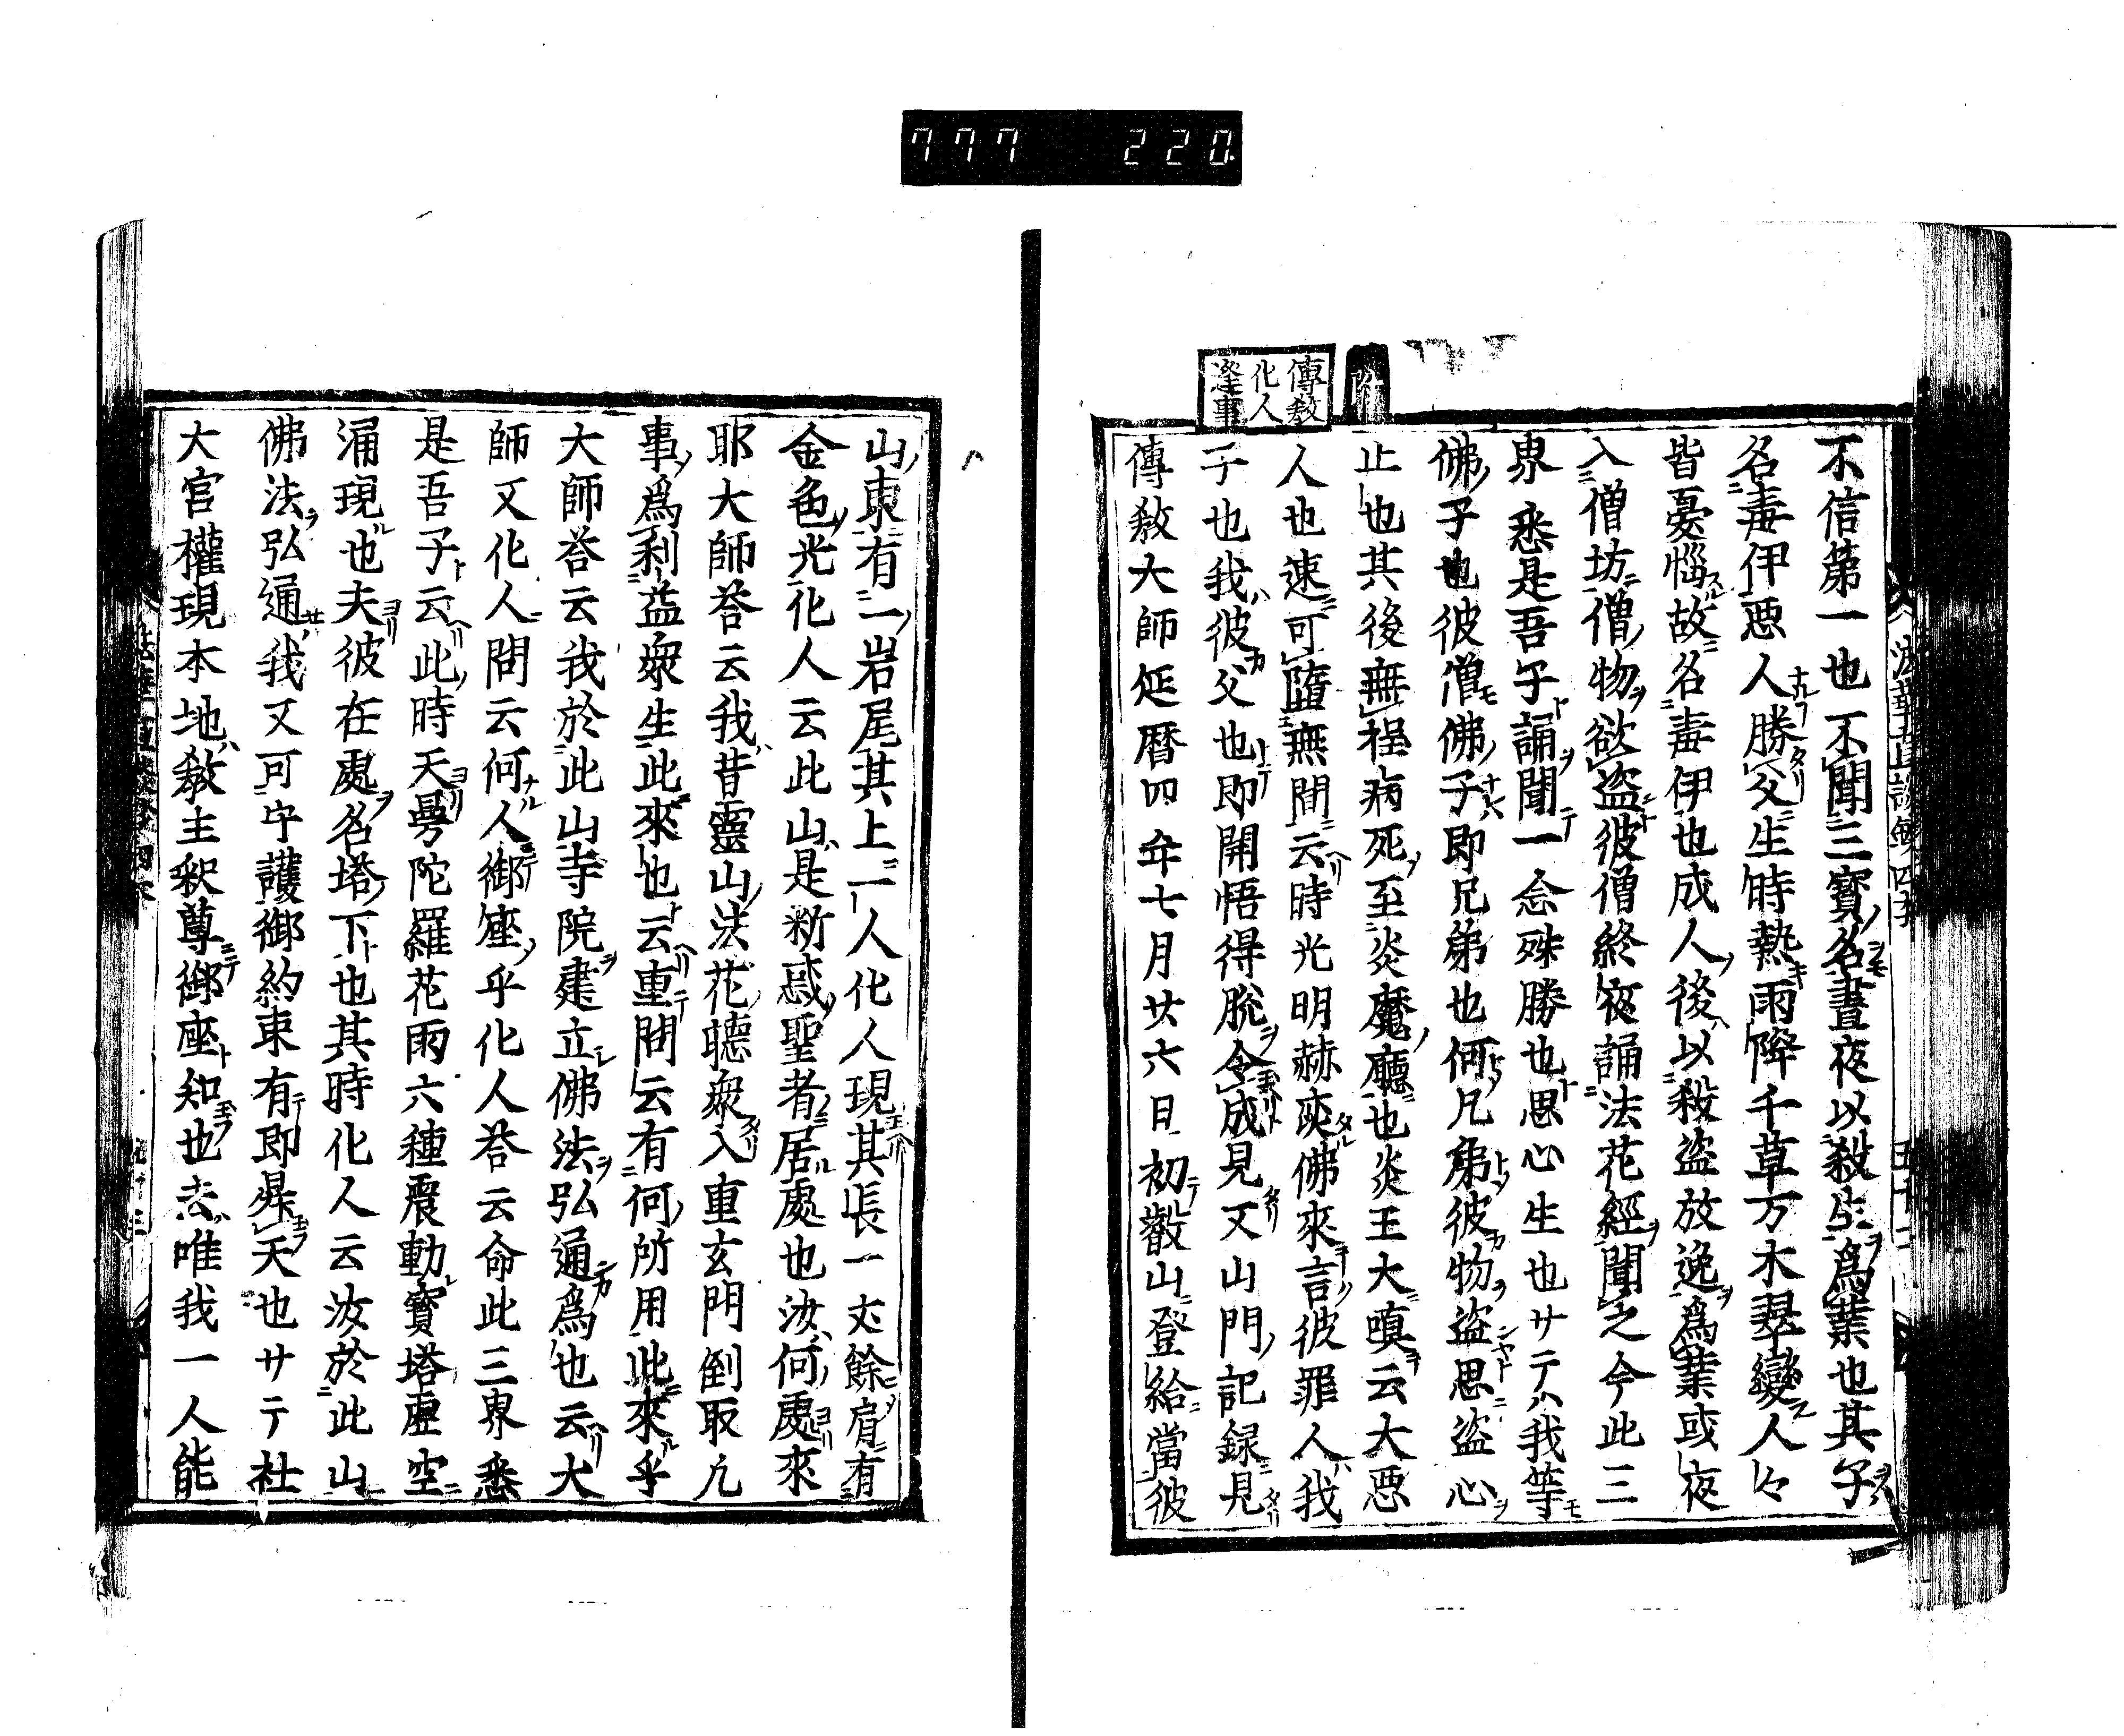 777 220
不信第一也不聞三寶名晝夜以殺生爲業也其子
名毒伊惡人勝父生時熱雨降千草万木翠變人々
皆憂惱故名毒伊也成人後以殺盜放逸爲業或夜
入僧坊僧物欲盜彼僧終夜誦法花經聞之今此三
界悉是吾子誦聞一念殊勝也思心生也サテハ我等
佛子也彼僧佛子即兄弟也何兄弟彼物盜思盜心
止也其後無程病死至炎魔廳也炎王大嗔云大惡
人也速可墮無間云時光明赫奕佛來言彼罪人我
子也我彼父也即開悟得脫令成見又山門記録見
附
傳教
化人
逢事
傳教大師延暦四年七月廿六日初叡山登給當彼
山東有一岩尾其上一人化人現其長一丈餘肩有
金色光化人云此山是斷惑聖者居處也汝何處來
耶大師答云我昔靈山法花聽衆入重玄門倒取凡
事爲利益衆生此來也云重問云有何所用此來乎
大師答云我於此山寺院建立佛法弘通爲也云大
師又化人問云何人御座乎化人答云命此三界悉
是吾子云此時天曼陀羅花雨六種震動寶塔虛空
涌現也夫彼在處名塔下也其時化人云汝於此山
佛法弘通我又可守護御約束有即昇天也サテ社
大宮權現本地教主釈尊御座知也去唯我一人能